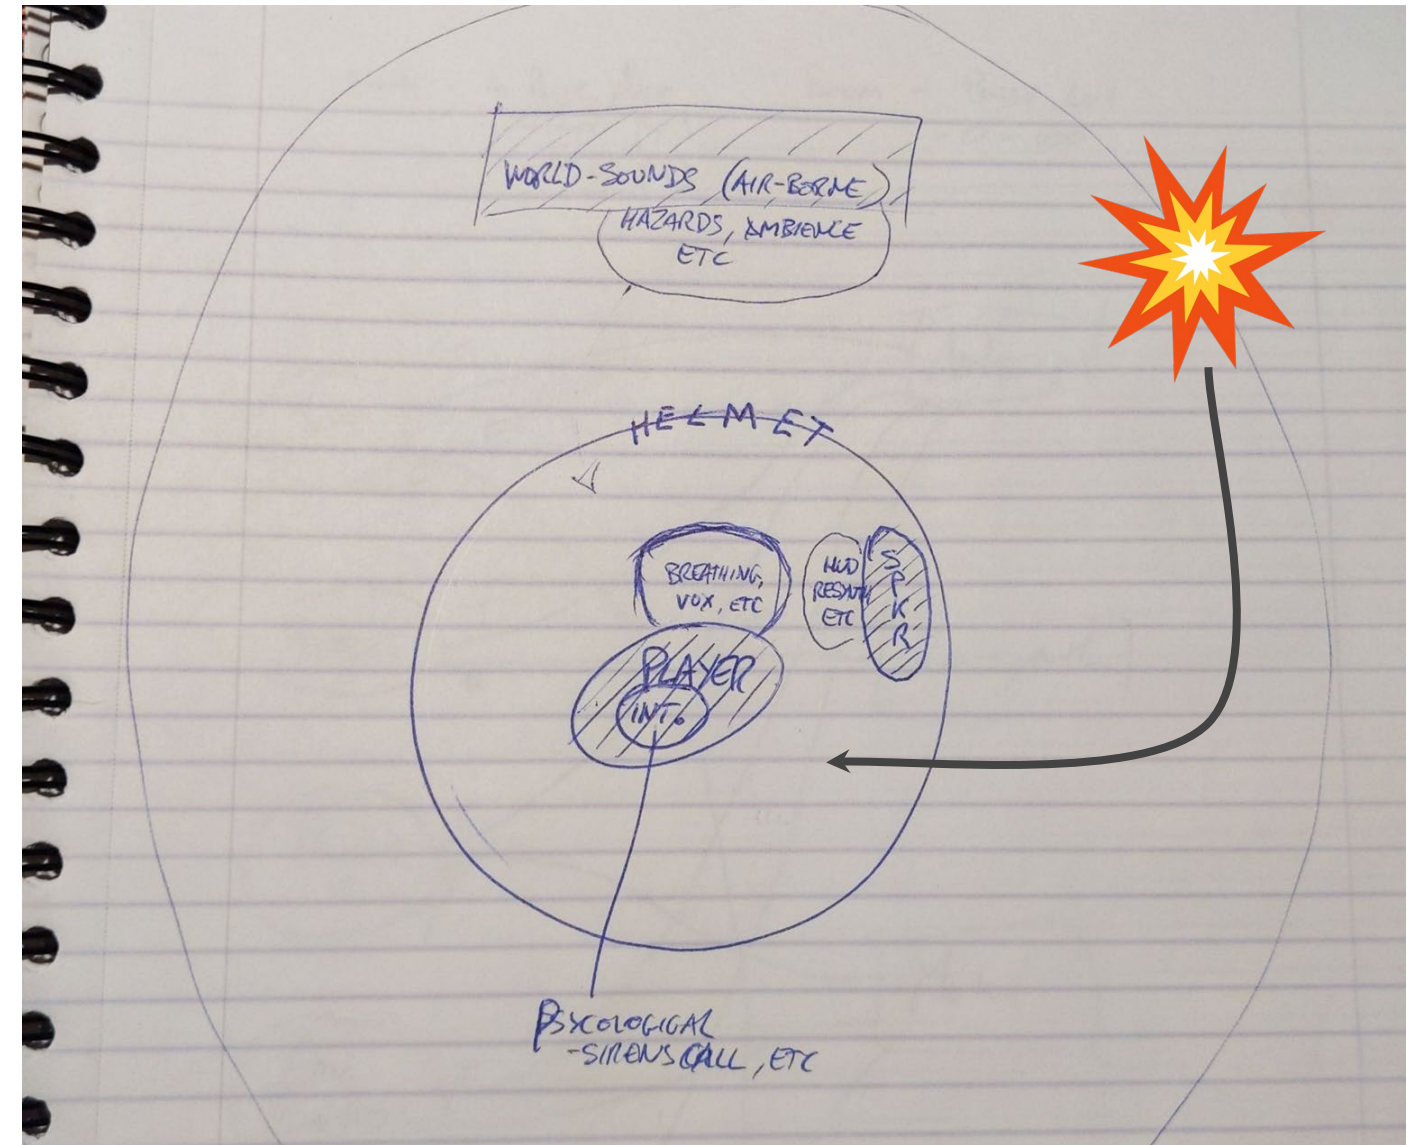 WORLD-SOUNDS (AIR-BORNE)
HAZARDS, AMBIENCE
ETC
HELMET
BREATHING,
VOX, ETC
HUD
RESYNTH
ETC
SPKR
PLAYER
INT.
PSYCOLOGICAL
-SIRENS CALL, ETC